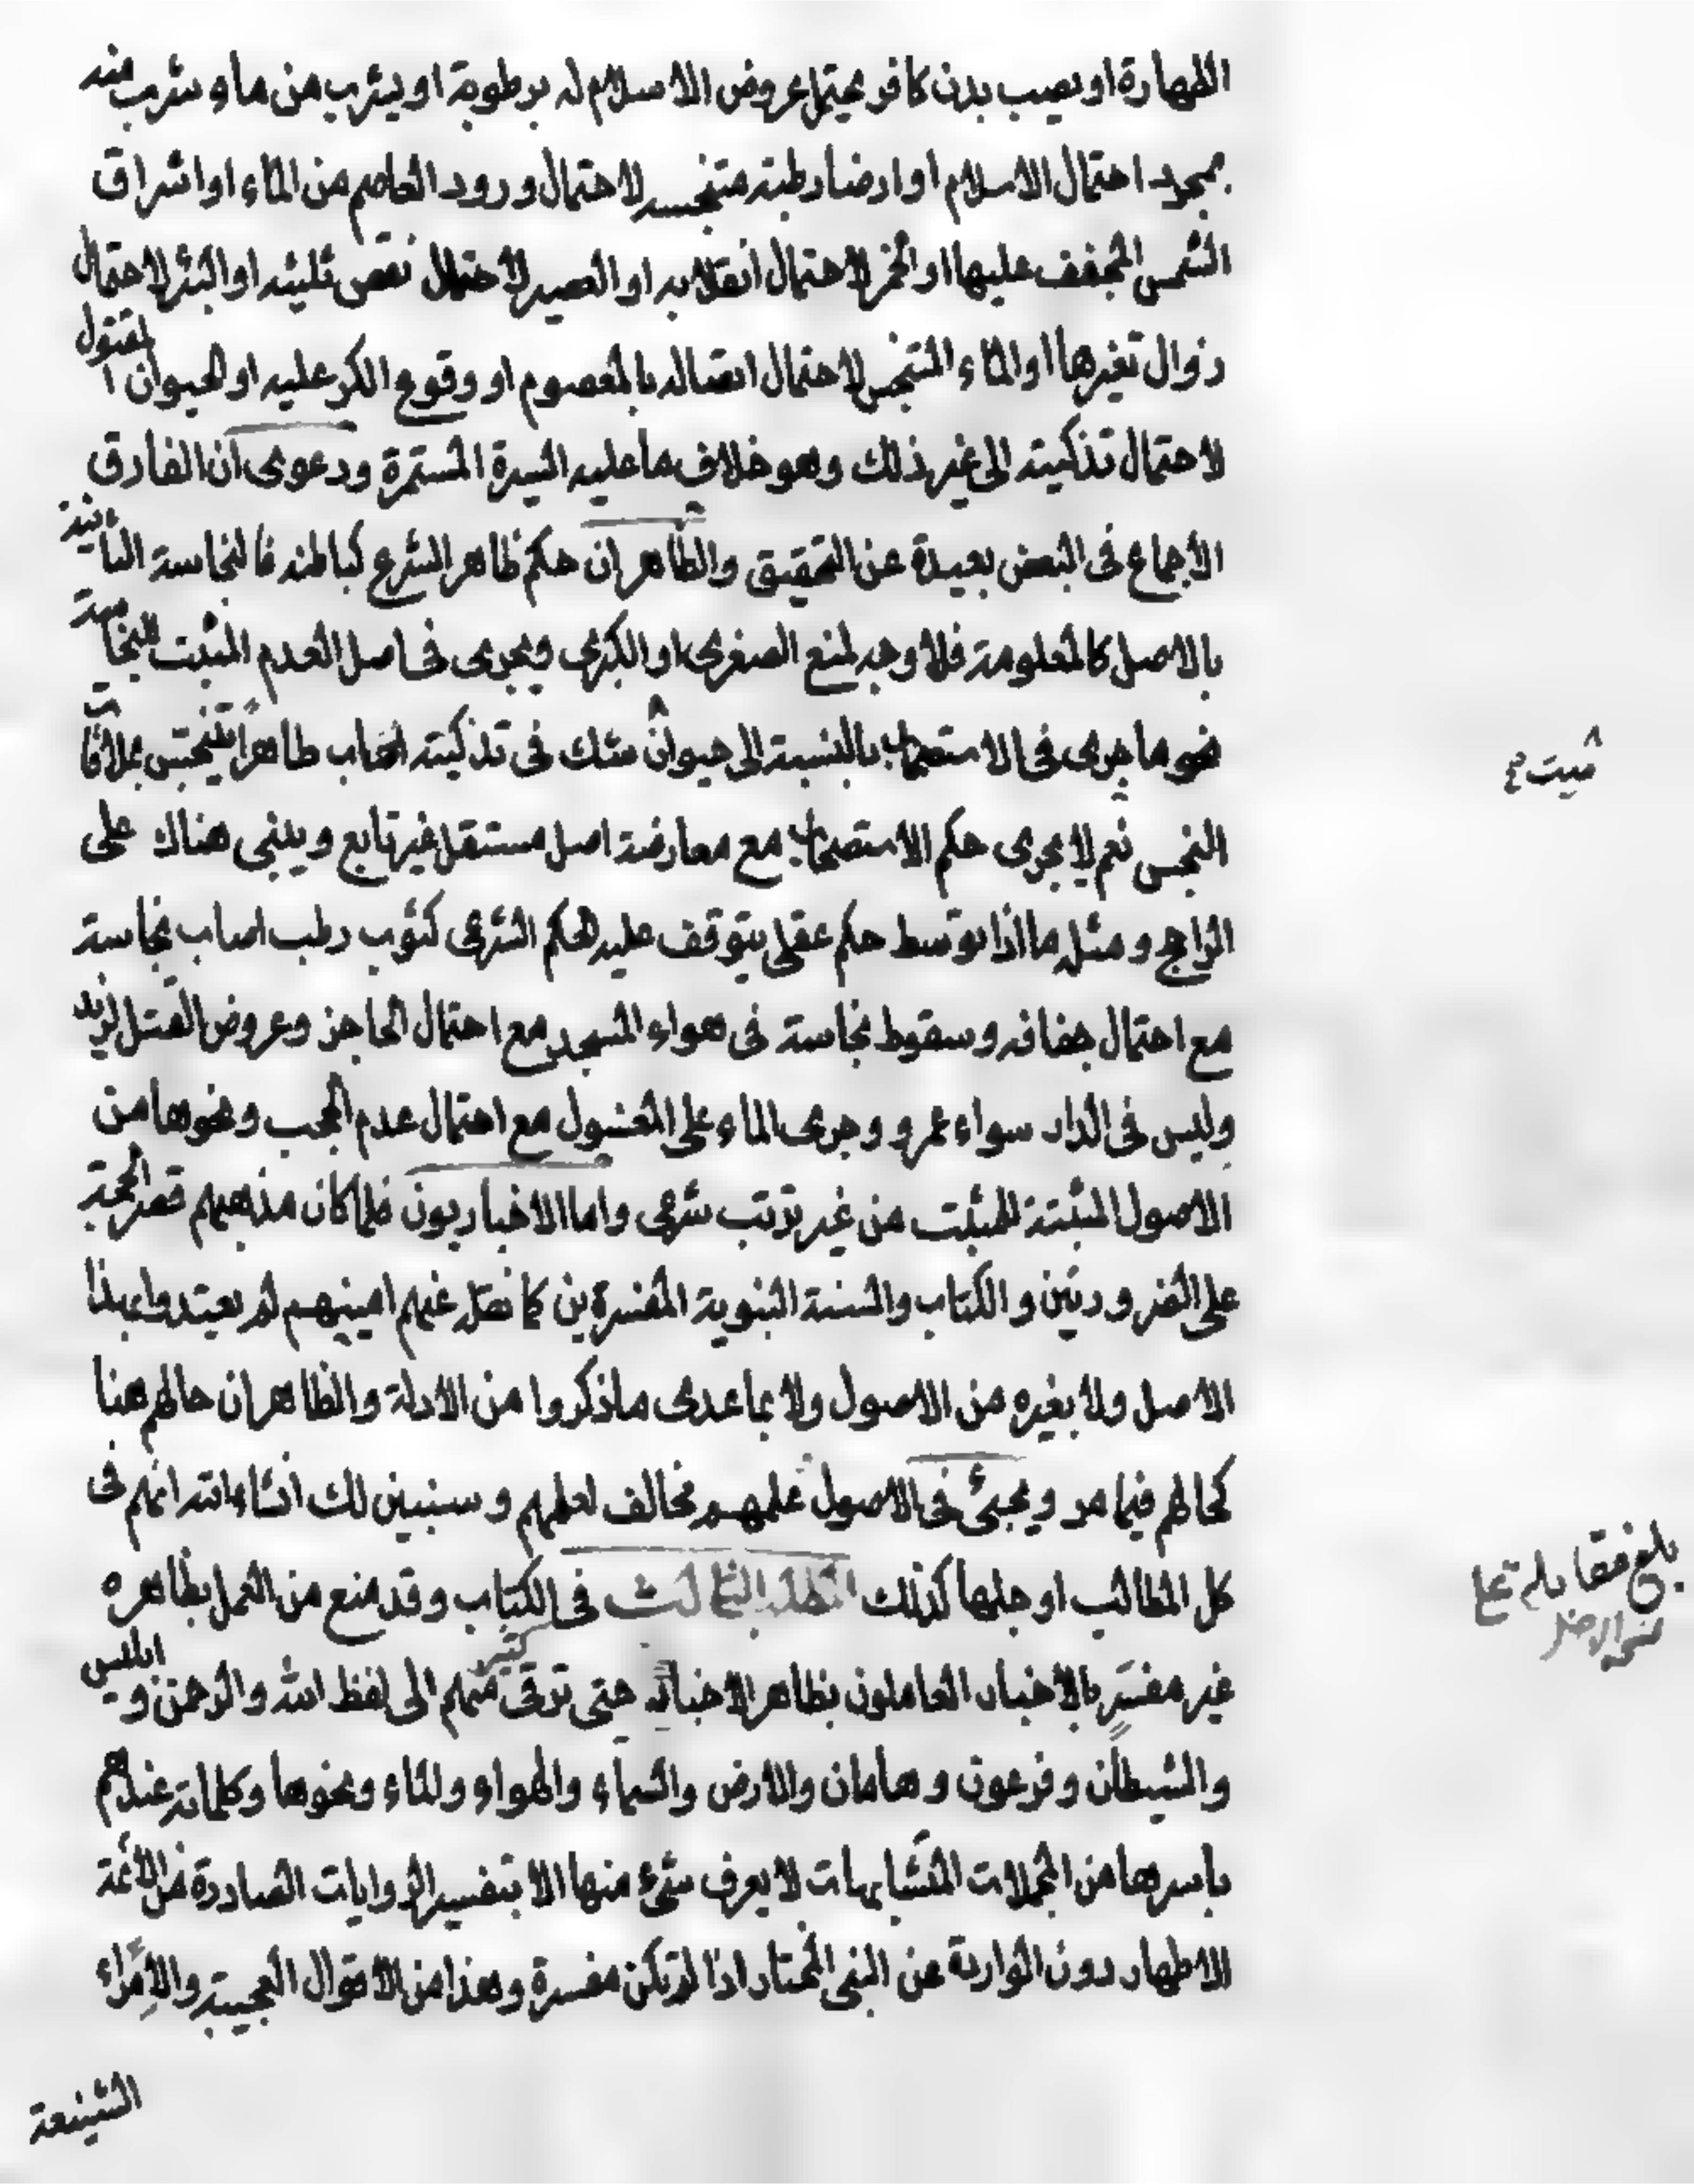 الطهارة او يصيب بدن كافر يحتمل عروض الاسلام له برطوبة او يشرب من ماء شرب منه
بمجرد احتمال الاسلام او ارضا رطبة متنجسه لاحتمال ورود العاصم من الماء او اشراق
الشمس المجفف عليها او الخمر لاحتمال انقلابه او العصير لاحتمال نقص ثلثيه او البئر لاحتمال
زوال تغيرها او الماء المتنجس لاحتمال اتصاله بالمعصوم او وقوع الكر عليه او الحيوان المقتول
لاحتمال تذكيته الى غير ذلك وهو خلاف ما عليه السيرة المستمرة ودعوى ان الفارق
الاجماع فى البعض بعيدة عن التحقيق والظاهر ان حكم ظاهر الشرع كباطنه فالنجاسة الثابتة
بالاصل كالمعلومة فلا وجه لمنع الصغرى او الكبرى ويجرى فى اصل العدم المثبت للنجاسة
نحو ما جرى فى الاستصحاب بالنسبة الى حيوان شك فى تذكيته اصاب طاهرا فينجس بملاقات
ميت صح
النجس نعم لا يجرى حكم الاستصحاب مع معارضة اصل مستقل غير تابع ويبنى هناك على
الراجح ومثله ما اذا توسط حكم عقلى يتوقف عليه الحكم الشرعى كثوب رطب اصاب نجاسة
مع احتمال جفافه وسقوط نجاسة فى هواء المسجد مع احتمال الحاجز وعروض القتل لزيد
وليس فى الدار سواء عمرو وجرى الماء على المغسول مع احتمال عدم الحجب ونحوها من
الاصول المثبتة للمثبت من غير ترتب شرعى واما الاخباريون فلما كان مذهبهم قصر الحجة
على الضروريتين والكتاب والسنة النبوية المفسرين كما نقل عنهم امينهم لم يعتدوا بهذا
الاصل ولا بغيره من الاصول ولا بما عدى ما ذكروا من الادلة والظاهر ان حالهم هنا
كحالهم فيما مر ويجئ فى الاصول علمهم مخالف لعملهم وسنبين لك انشاء الله انهم فى
كل المطالب او جلها كذلك المطلب الثالث فى الكتاب وقد منع من العمل بظاهره
بلغ مقابلة
غير مفسر بالاخبار العاملون بظاهر الاخبار حتى ترقى كثير منهم الى لفظ الله والرحمن وابليس
والشيطان وفرعون وهامان والارض والسماء والهواء والماء ونحوها وكلماته عندهم
باسرها من المجملات المتشابهات لا يعرف شئ منها الا بتفسير الروايات الصادرة من الائمة
الاطهار دون الواردة عن النبى المختار اذا لم تكن مفسرة وهذا من الاقوال العجيبة والاراء
الشنيعة